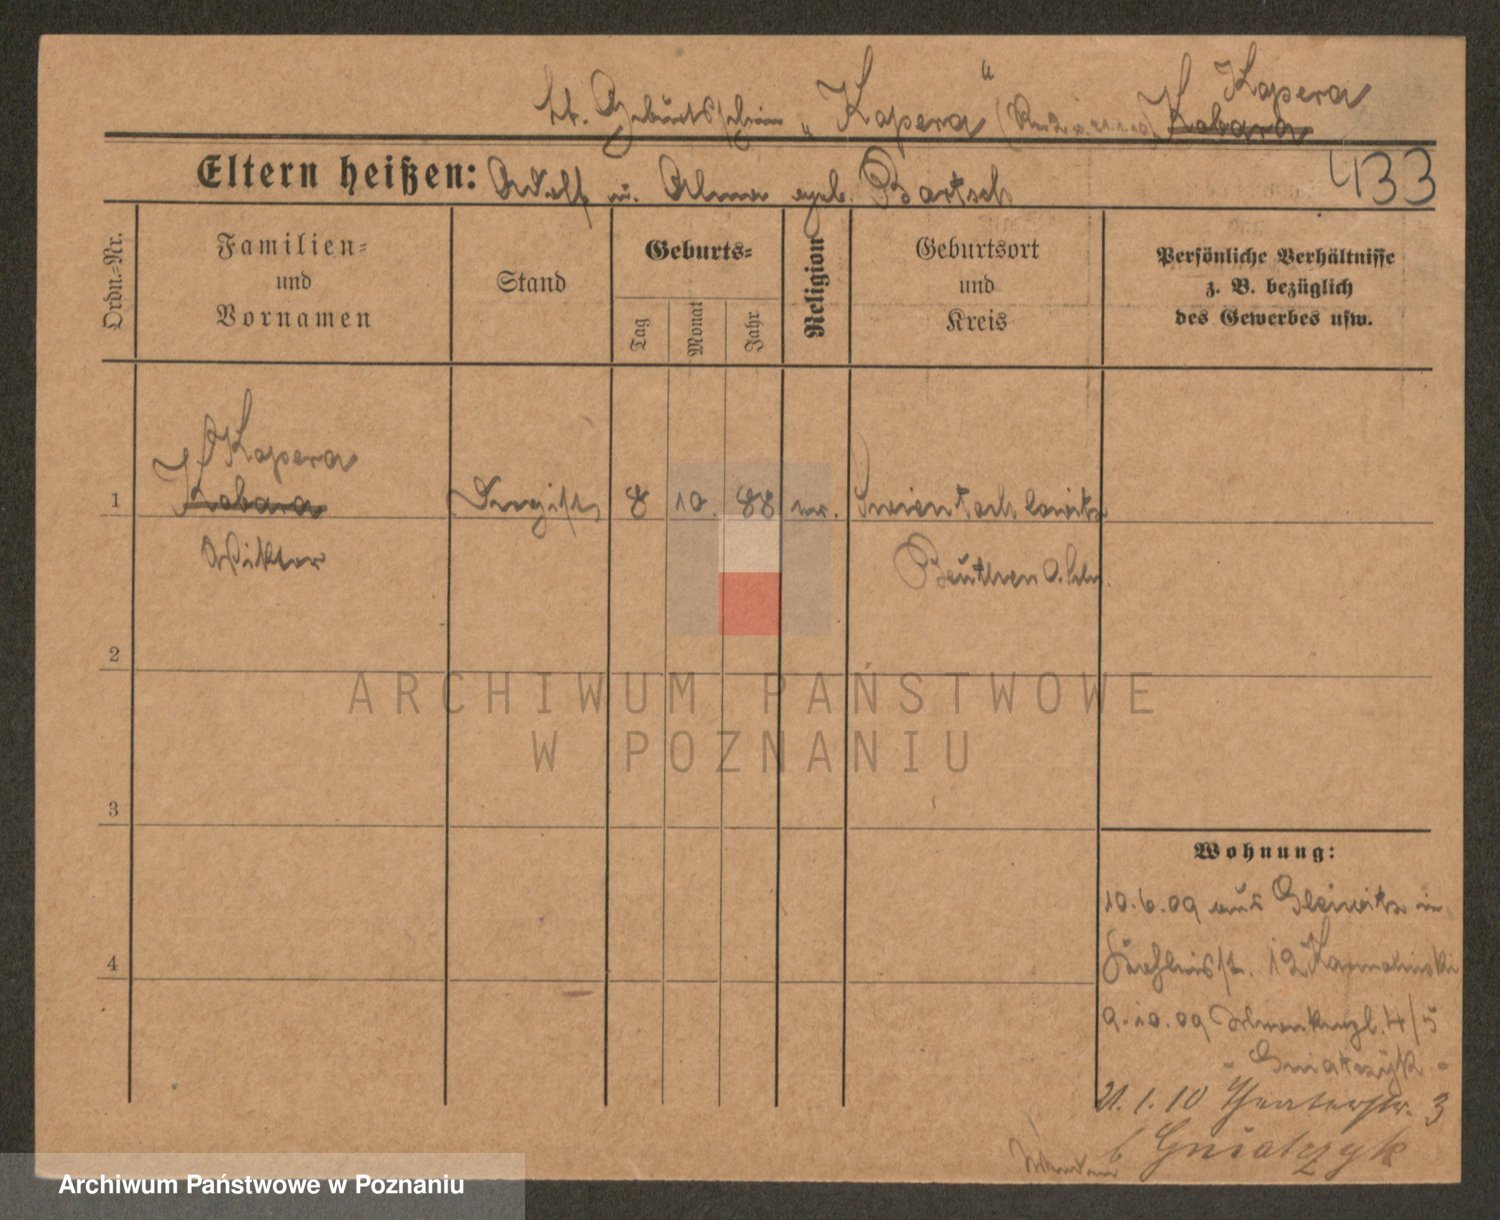 lt. Geburtsschein „Kapera“ Kapera
Kobara
Eltern heißen: Adolf u. Alma geb. Bartsch 433
Ordn.-Nr.
Familien-
und
Vornamen
Stand
Geburts-
Tag
Monat
Jahr
Religion
Geburtsort
und
Kreis
Persönliche Verhältnisse
z. B. bezüglich
des Gewerbes usw.
Kapera
1 Kobara Drogist 8 10. 88 Swientochlowitz
Wiktor Beuthen O. Schl.
2
ARCHIWUM PAŃSTWOWE
W POZNANIU
3
Wohnung:
10.6.09 aus Gleiwitz in
4 12
9.10.09 4/5
- Gniatczyk -
21.1.10 Theaterstr. 3
b Gniatczyk
Archiwum Państwowe w Poznaniu